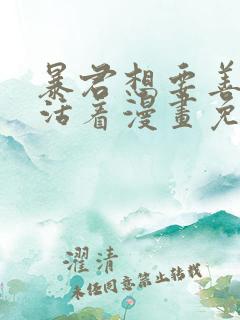 暴君想要善
活着漫畫免
濯清
未任同意禁止转载